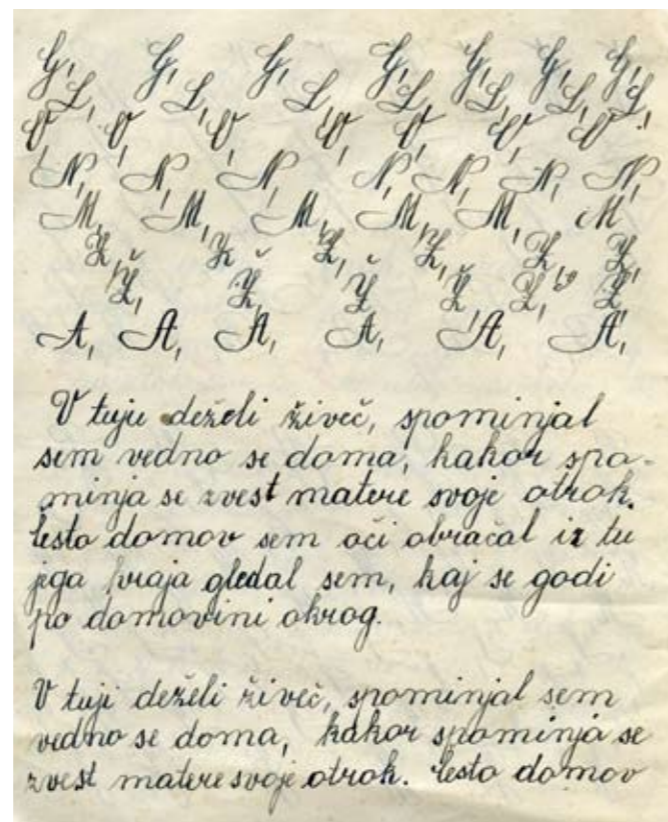 G, G, G, G, G, G, G,
L, L, L, L, L, L, L,
O, O, O, O, O, O, O,
N, N, N, N, N, N, N,
M, M, M, M, M, M
Z, Z, Z, Z, Z, Z,
Ž, Ž, Ž, Ž, Ž, Ž
A, A, A, A, A, A,
V tuju deželi živeč, spominjal
sem vedno se doma, kakor spo-
minja se zvest matere svoje otrok.
Često domov sem oči obračal iz tu
jega kraja gledal sem, kaj se godi
po domovini okrog.
V tuji deželi živeč, spominjal sem
vedno se doma, kakor spominja se
zvest matere svoje otrok. Često domov